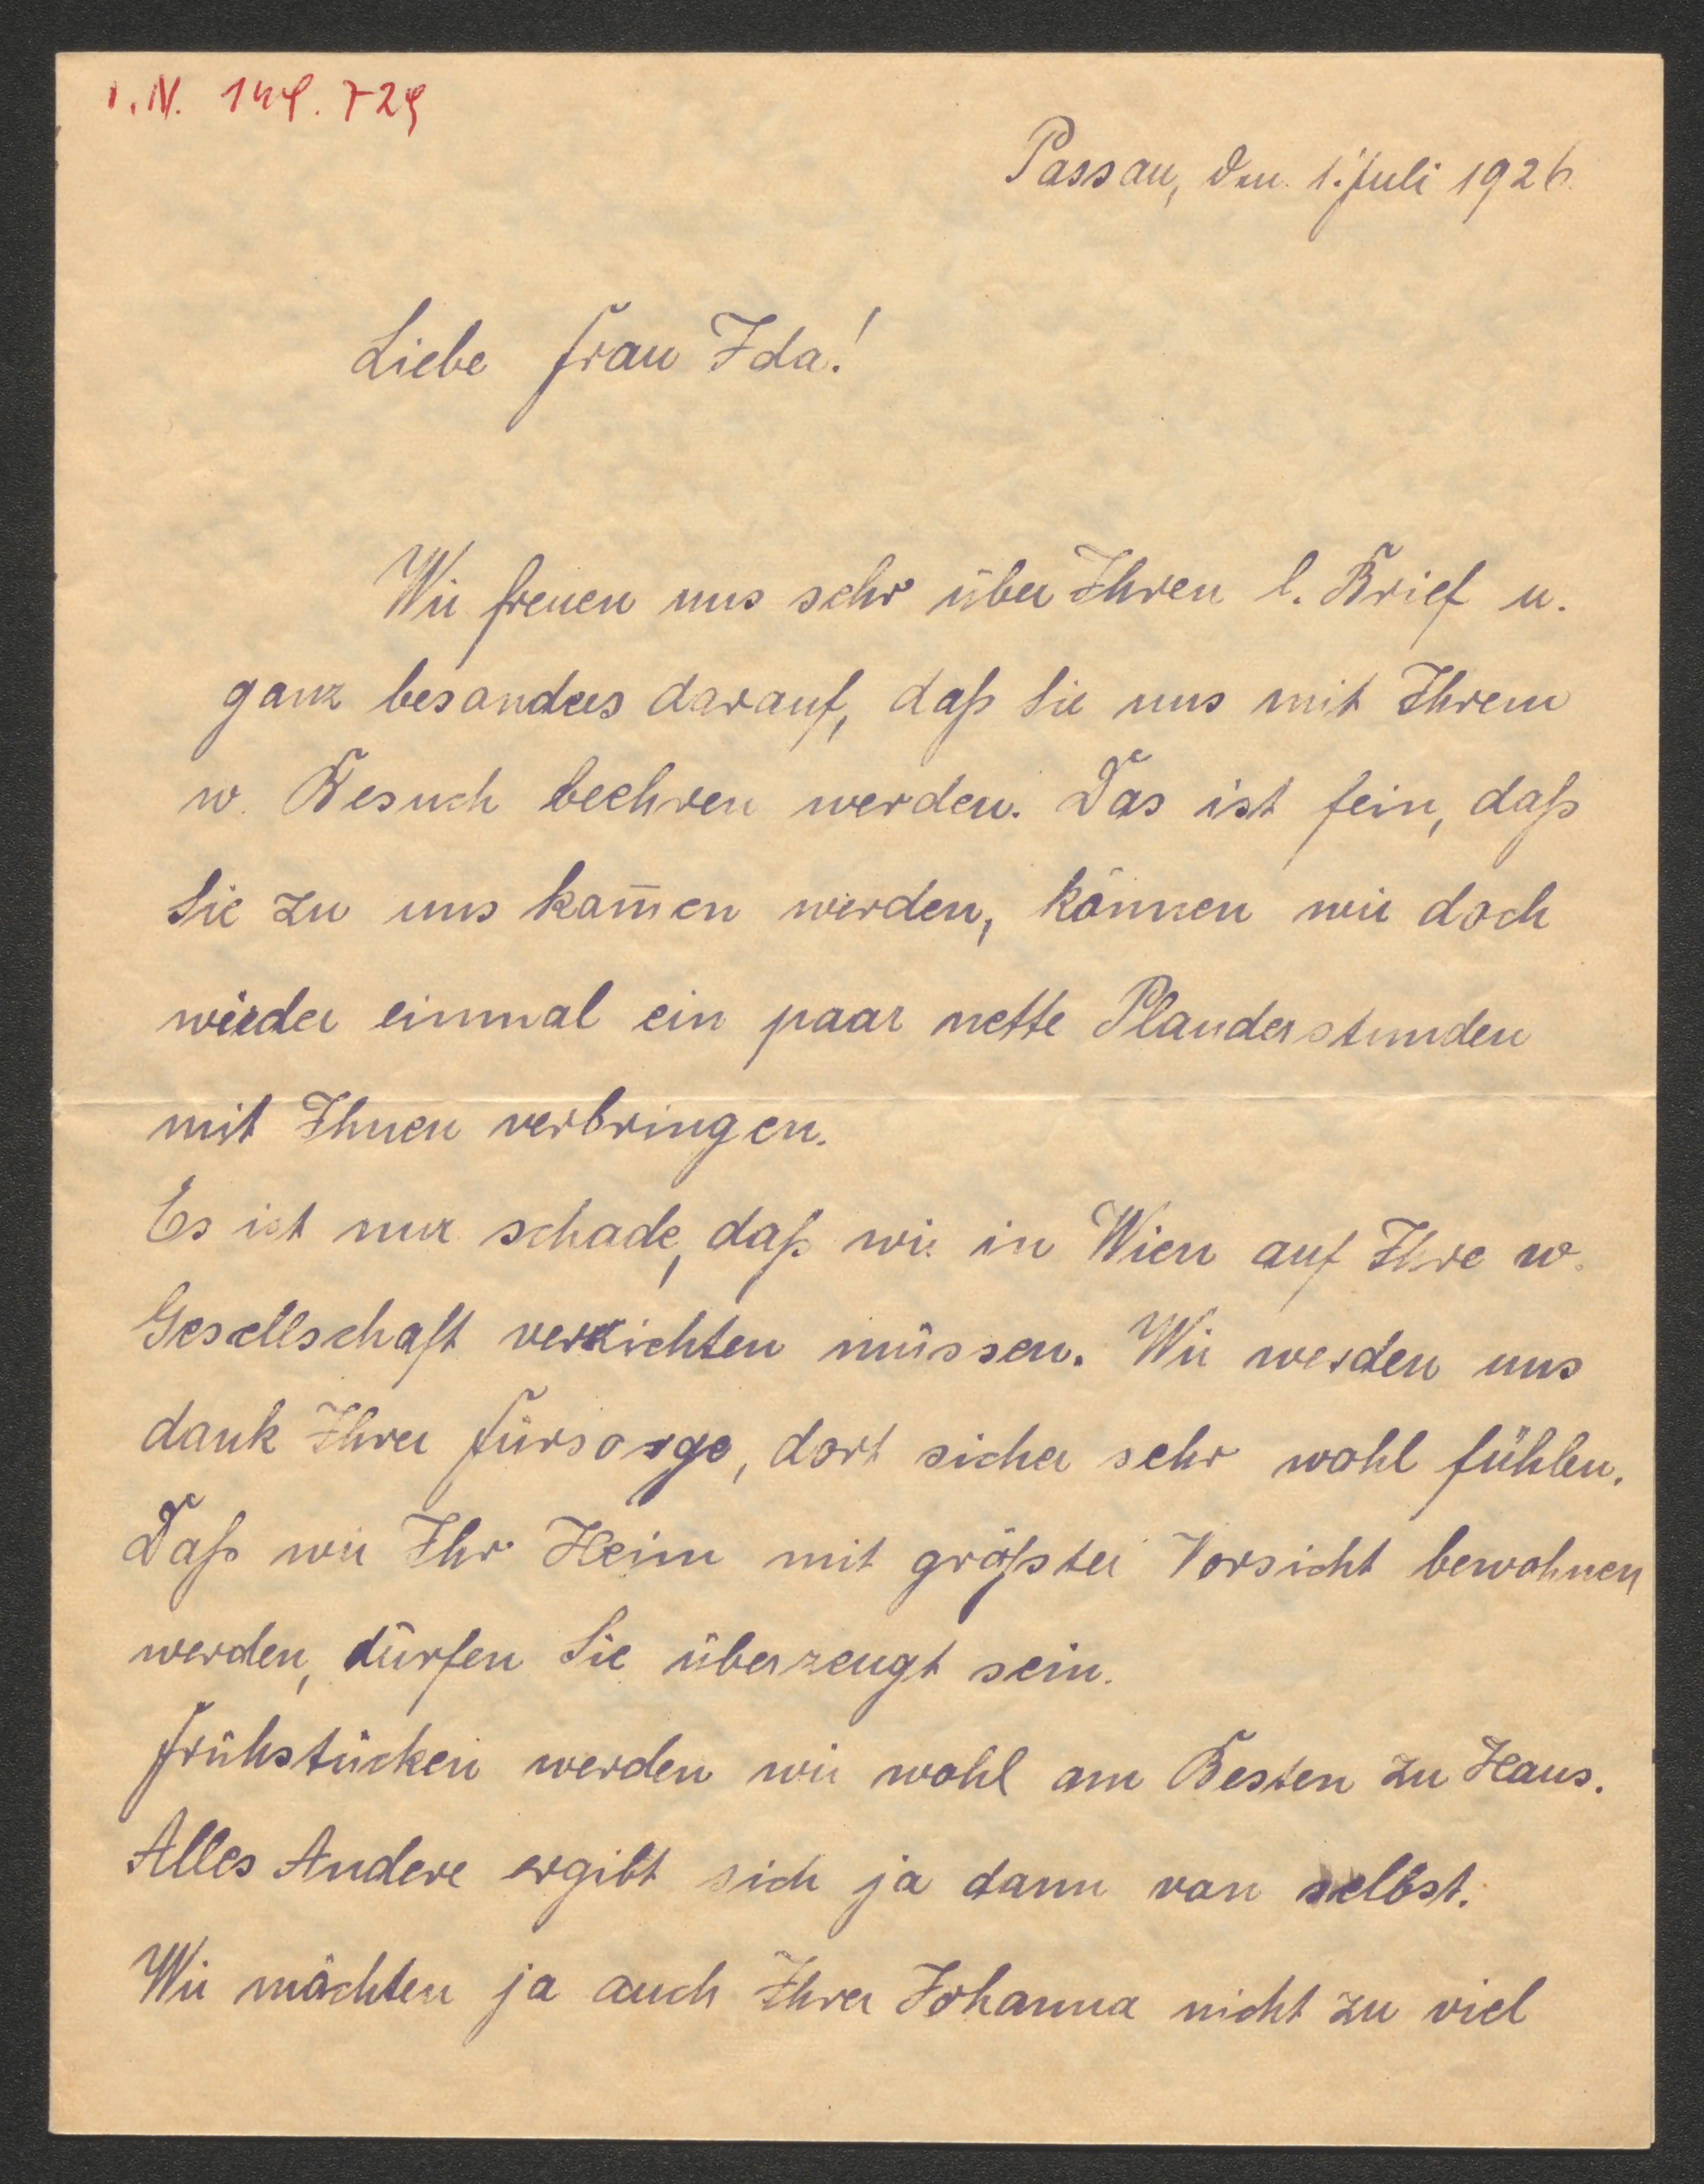 I. N. 149.729
Passau, den 1. Juli 1926.
Liebe Frau Ida!
Wir freuen uns sehr über Ihren l. Brief u.
ganz besonders darauf, daß Sie uns mit Ihrem
w. Besuch beehren werden. Das ist fein, daß
Sie zu uns kom̄en werden, können wir doch
wieder einmal ein paar nette Plauderstunden
mit Ihnen verbringen.
Es ist nur schade, daß wir in Wien auf Ihre w.
Gesellschaft verzichten müssen. Wir werden uns
dank Ihrer Fürsorge, dort sicher sehr wohl fühlen.
Daß wir Ihr Heim mit größter Vorsicht bewohnen
werden, dürfen Sie überzeugt sein.
Frühstücken werden wir wohl am Besten zu Haus.
Alles Andere ergibt sich ja dann von selbst.
Wir möchten ja auch Ihrer Johanna nicht zu viel